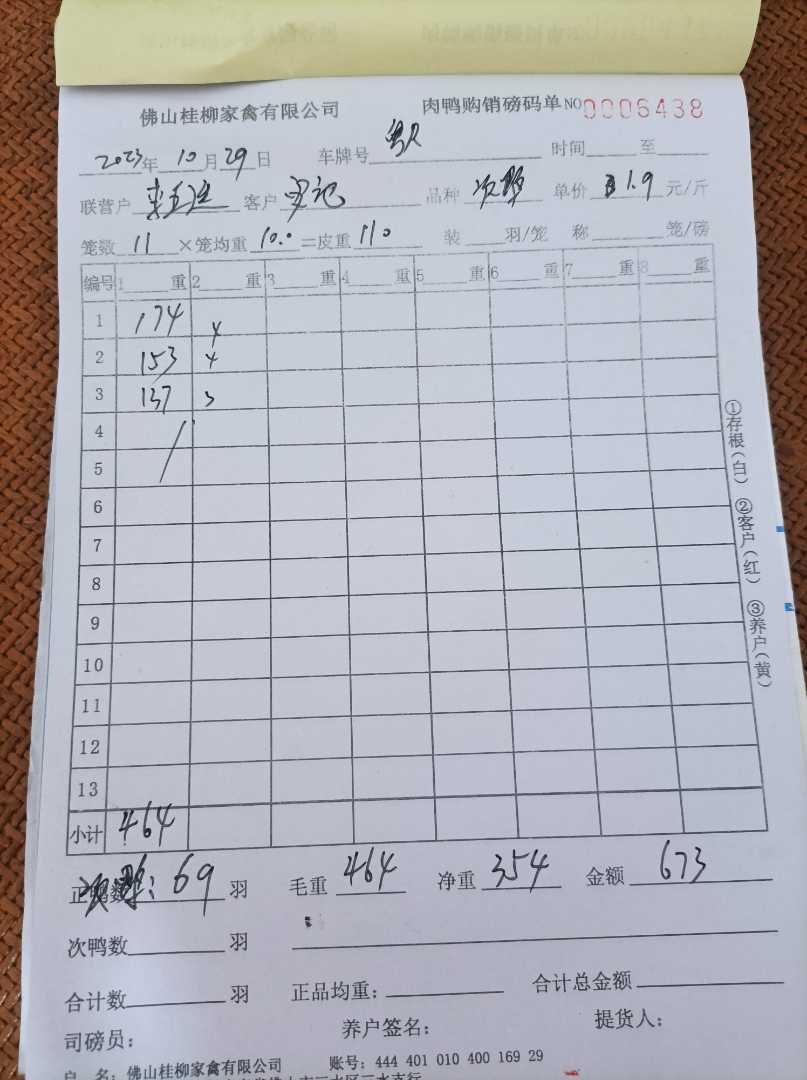 佛山桂柳家禽有限公司 肉鸭购销磅码单 NO 0006438
2023年 10月 29日 车牌号 时间 至
联营户 客户 罗记 品种 次鸭 单价 1.9 元/斤
笼数 11 ×笼均重 10.0 =皮重 110 装 羽/笼 称 笼/磅
编号 1 重 2 重 3 重 4 重 5 重 6 重 7 重 8 重
1 174 4
2 153 4
3 137 3
4
5
6
7
8
9
10
11
12
13
小计 464
①存根(白) ②客户(红) ③养户(黄)
正鸭数 次鸭: 69 羽 毛重 464 净重 354 金额 673
次鸭数 羽
合计数 羽 正品均重: 合计总金额
司磅员: 养户签名: 提货人:
户 名: 佛山桂柳家禽有限公司 账号: 444 401 010 400 169 29